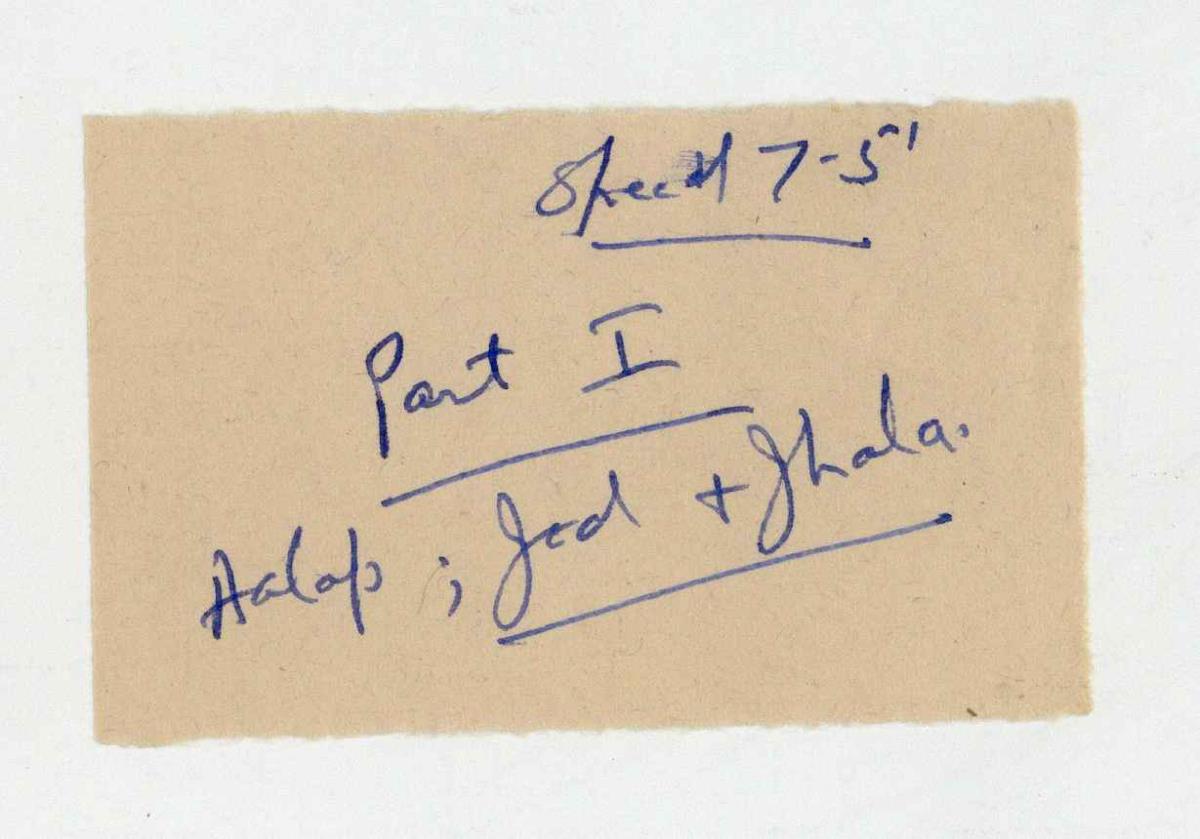 Speed 7-5'
Part I
Aalap ; Jod + Jhala.